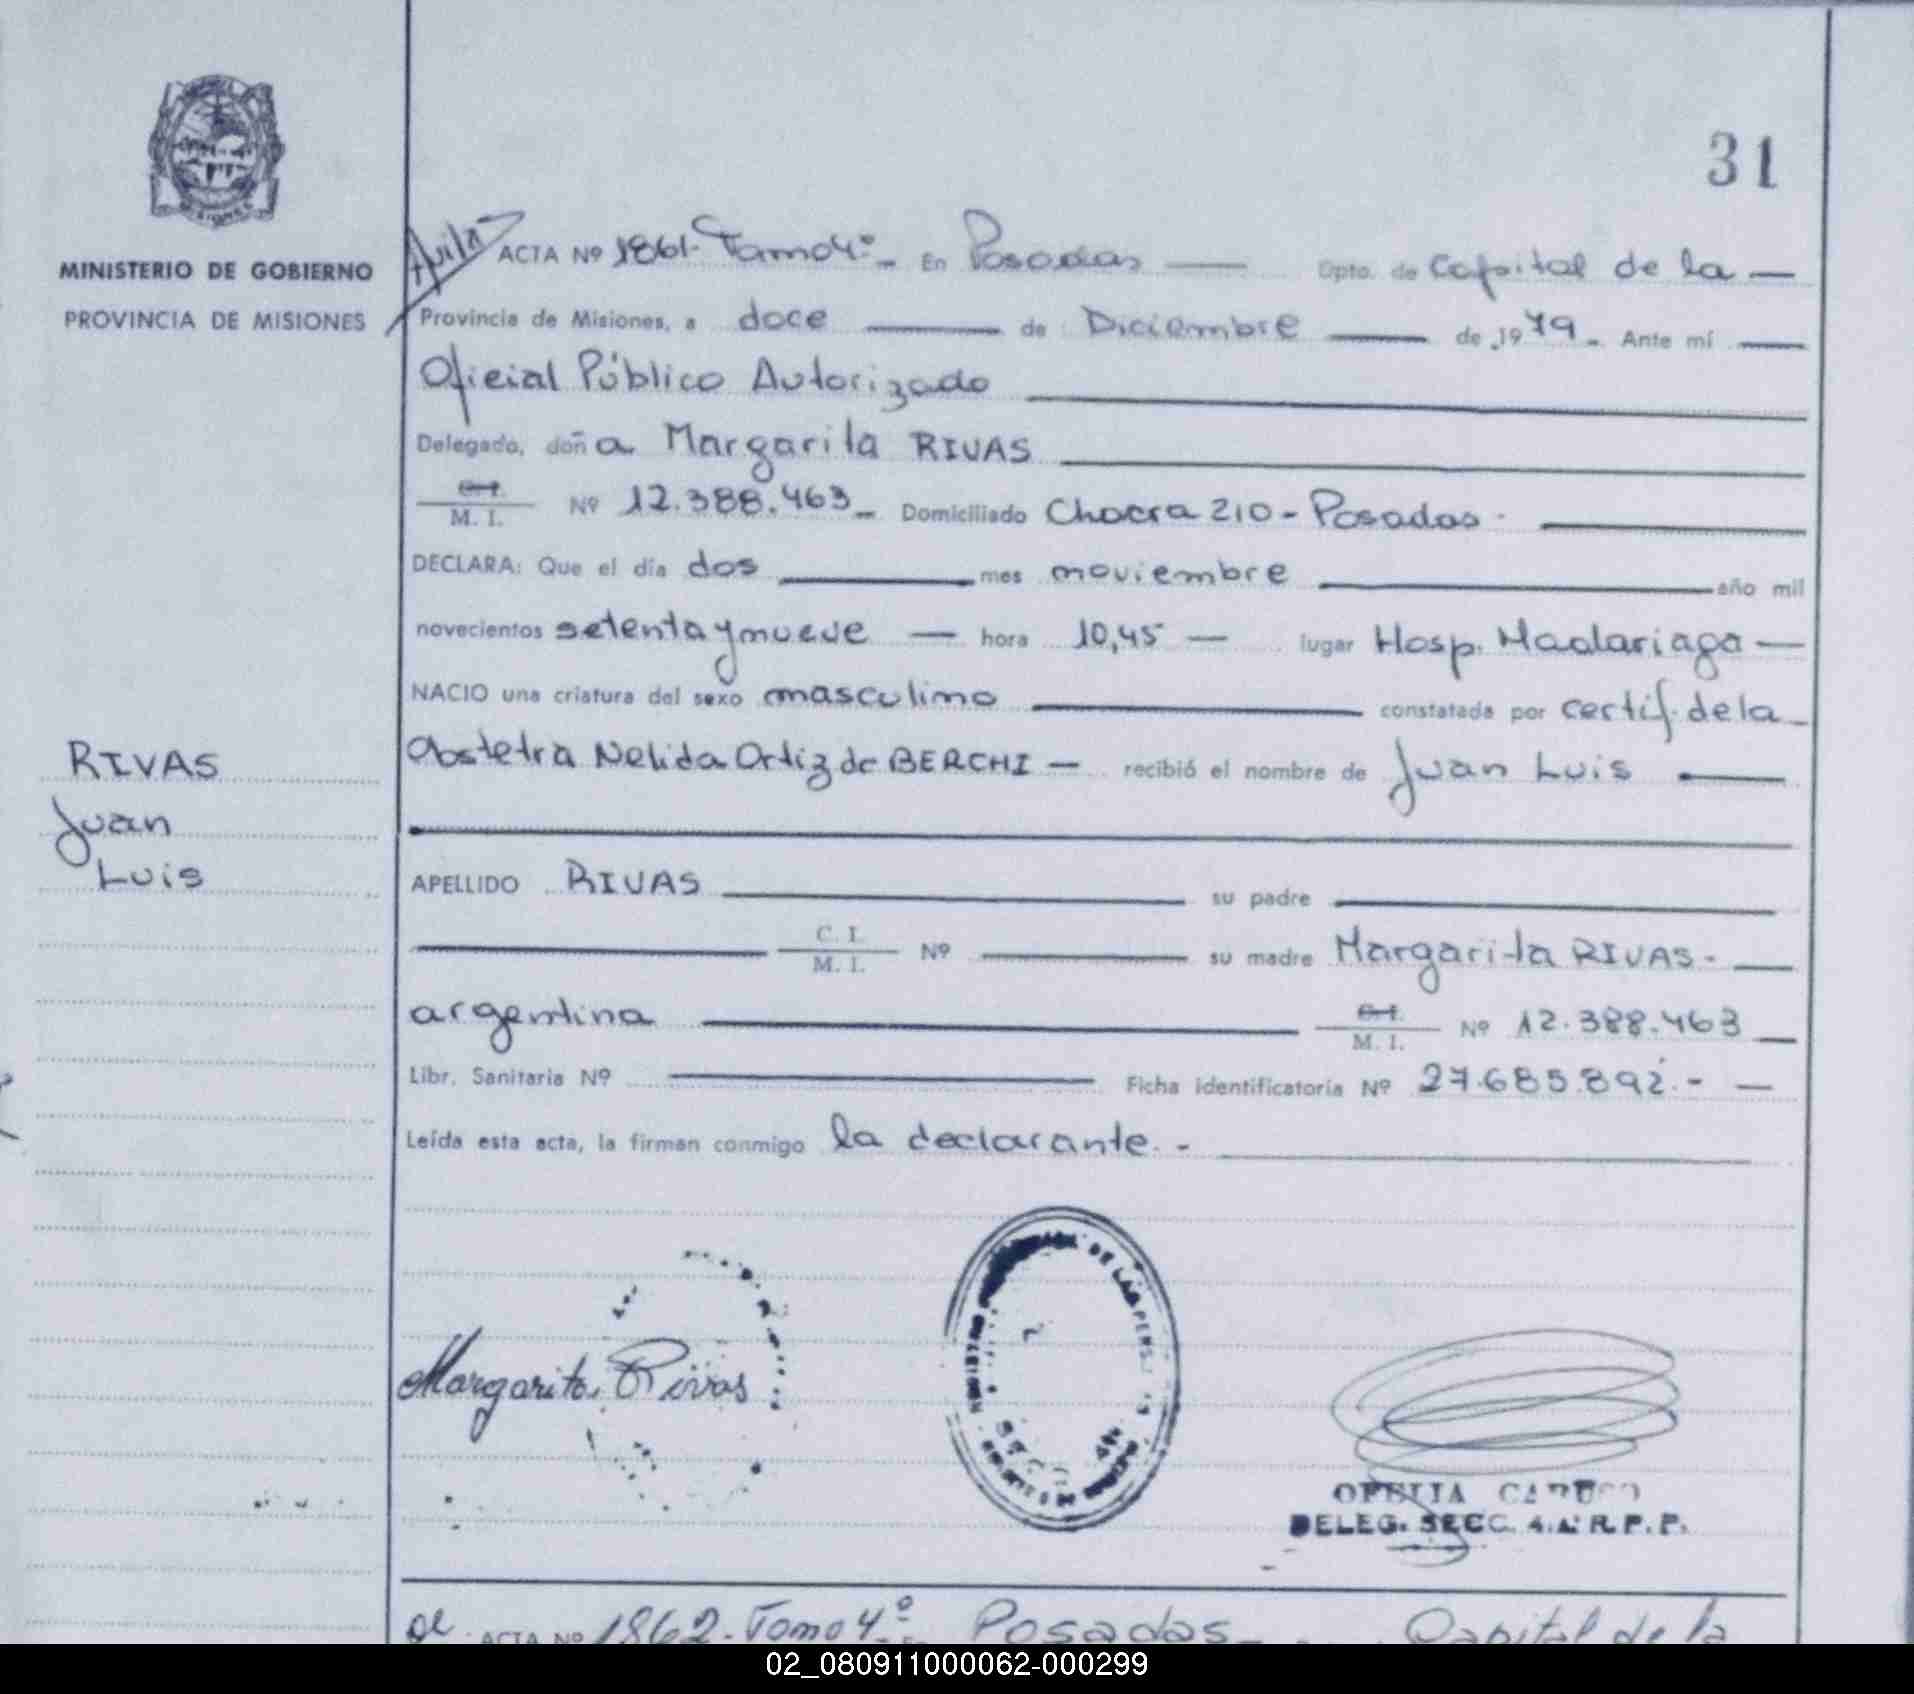 31
MINISTERIO DE GOBIERNO
PROVINCIA DE MISIONES
Avila ACTA Nº 1861- Tomo 4º - En Posadas — Dpto. de Capital de la —
Provincia de Misiones, a doce — de Diciembre — de 1979 - Ante mí —
Oficial Público Autorizado
Delegado, doña Margarita RIVAS
C. I.
M. I. Nº 12.388.463 - Domiciliado Chacra 210 - Posadas -
DECLARA: Que el día dos — mes noviembre — año mil
novecientos setenta y nueve — hora 10,45 — lugar Hosp. Madariaga —
NACIO una criatura del sexo masculino — constatada por certif. de la
Obstetra Nelida Ortiz de BERCHI — recibió el nombre de Juan Luis —
RIVAS
Juan
Luis
APELLIDO RIVAS — su padre —
C. I.
M. I. Nº — su madre Margarita RIVAS - —
argentina — C. I.
M. I. Nº 12.388.463 —
Libr. Sanitaria Nº — Ficha identificatoria Nº 27.685.892.- —
Leída esta acta, la firman conmigo la declarante. -
Margarita Rivas
DE LAS PERS
OFELIA CARUSO
DELEG. SECC. 4.a R.P.P.
ACTA Nº 1862- Tomo 4º - Posadas - Capital de la
02_080911000062-000299